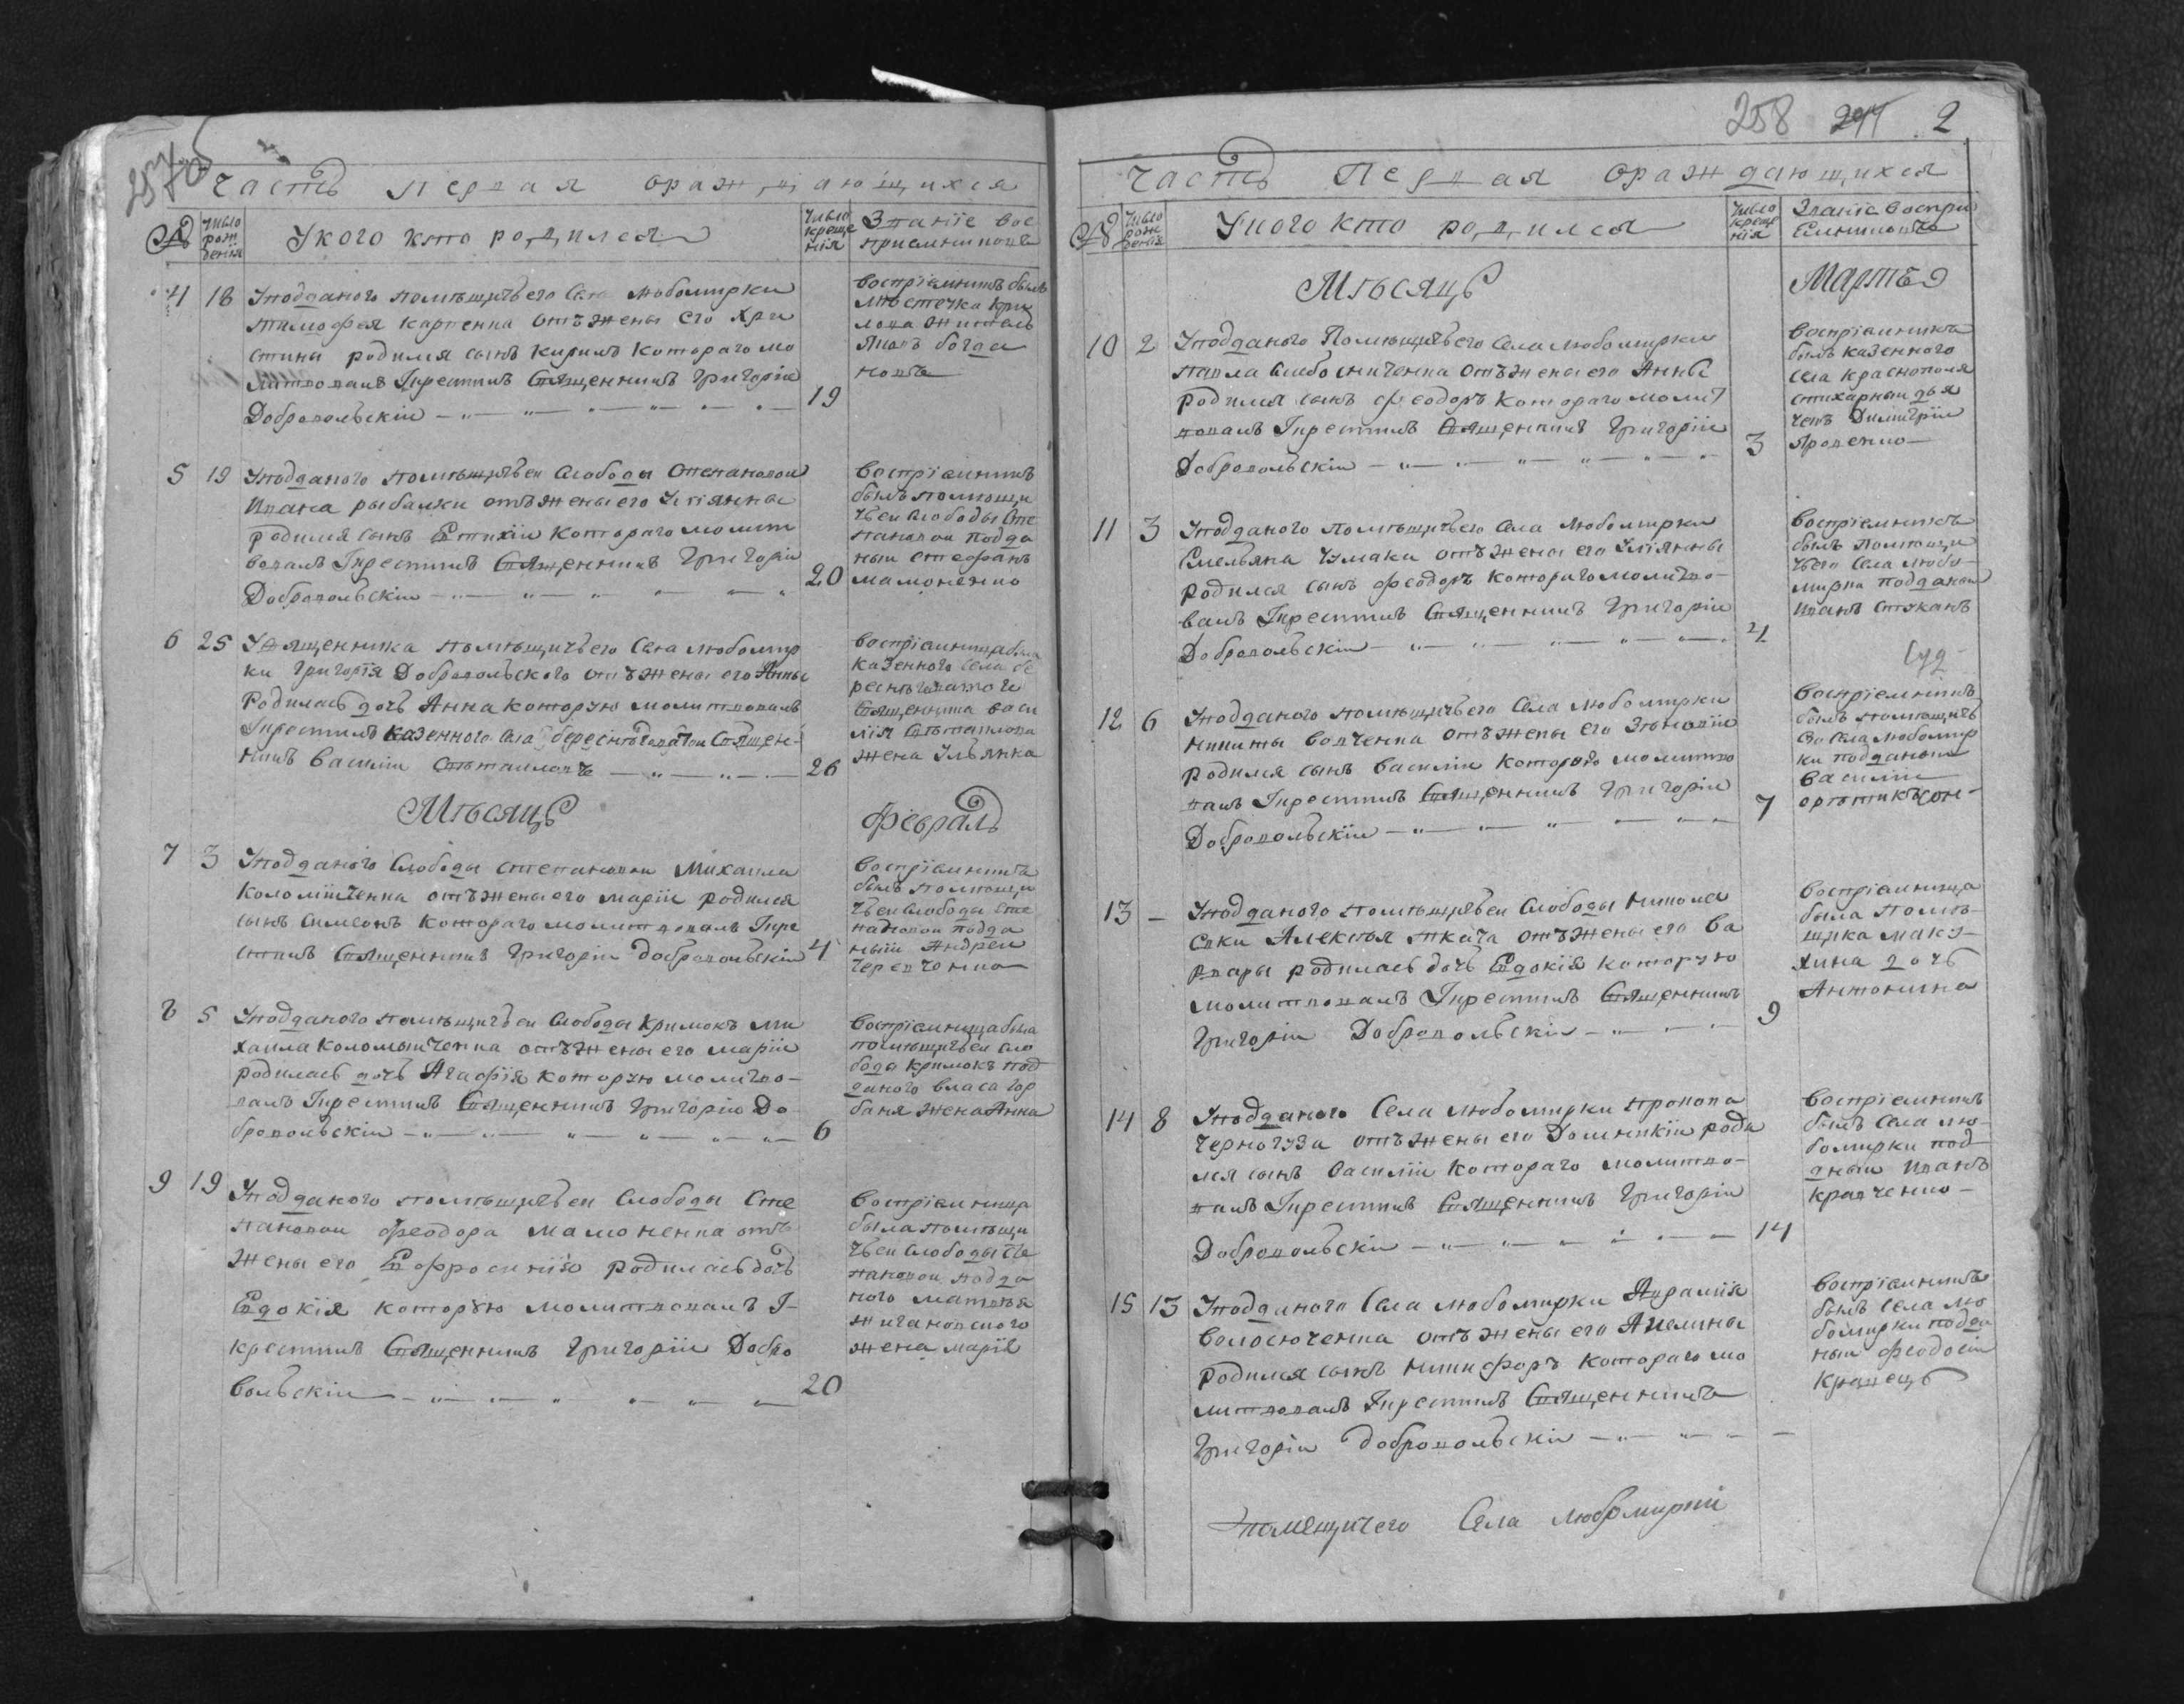 Часть первая ораждающихся
№
Число рождения
У кого кто родился
Число крещения
Звание восприемниковъ
4 18 Уподданого помѣщичьего Села Любомирки
тимофея карпенка отъ жены его Хри
стины родился сынъ Кирилъ котораго мо
литвовалъ Iкрестилъ Священникъ Григорiй
Добровольскiй 19
Воспрiемникъ былъ
мѣстечка кри
лова житель
Яковъ богда
новъ
5 19 Уподданого помѣщичьей Слободы Степановой
Ивана рыбалки отъ жены его Улiянны
родился сынъ Евтихiй котораго молит
вовалъ Iкрестилъ Священникъ Григорiй
Добровольскiй 20
Воспрiемникъ
былъ помѣщи
чьей Слободы Сте
пановой подда
ный Стефанъ
мамоненко
6 25 Священника помѣщичьего Села Любомир
ки Григорiя Добровольского отъ жены его Анны
Родилась дочь Анна которую молитвовалъ
Iкрестилъ казенного Села Священ-
никъ Василiй 26
Воспрiемница была
казенного Села бе
Священника Васи
лiя
жена Ульянка
Мѣсяцъ Февраль
7 3 Уподданого Слободы Степановки Михаила
Коломiйченка отъ жены его марiи родился
сынъ Симеонъ котораго молитвовалъ Iкре
стилъ Священникъ Григорiй Добровольскiй 4
Воспрiемникъ
былъ помѣщи
чьей Слободы Сте
пановой подда
ный Андрей
Черевченко
8 5 Уподданого помѣщичьей Слободы Кримокъ Ми
хаила Коломыйченка отъ жены его марiи
родилась дочь Агафiя которую молитво-
валъ Iкрестилъ Священникъ Григорiй До
бровольскiй 6
Воспрiемница была
помѣщичьей Сло
боды Кримокъ под
даного Власа Гор
баня жена Анна
9 19 Уподданого помѣщичьей Слободы Сте
пановой Феодора мамоненка отъ
жены его Ефросинiю родилась дочь
Евдокiя которую молитвовалъ I-
крестилъ Священникъ Григорiй Добро
вольскiй 20
Воспрiемница
была помѣщи
чьей Слободы Сте
пановой подда
ного матвѣя
жена марiя
258 2
Часть Первая ораждающихся
№
Число рождения
У кого кто родился
Число крещенiя
Званiе воспри
емниковъ
Мѣсяцъ Мартъ
10 2 Уподданого Помѣщичьего Села Любомирки
павла Слабосниченка отъ жены его Анны
Родился сынъ Феодоръ котораго молит
вовалъ Iкрестилъ Священникъ Григорiй
Добровольскiй 3
Воспрiемникъ
былъ казенного
Села Краснополя
стихарный дья
чекъ Димитрiй
Яровенко
11 3 Уподданого помѣщичьего Села Любомирки
Емельяна Чумаки отъ жены его Улiянны
родился сынъ Феодоръ котораго молитво-
валъ Iкрестилъ Священникъ Григорiй
Добровольскiй 4
Воспрiемникъ
былъ Помѣщи
чьего Села любо-
мирки подданый
Иванъ Стуканъ
12 6 Уподданого помѣщичьего Села Любомирки
Никиты Вовченка отъ жены его Зѣновiи
родился сынъ Василiй котораго молитво
валъ Iкрестилъ Священникъ Григорiй
Добровольскiй 7
Воспрiемникъ
былъ помѣщичь
го Села Любомир
ки подданый
Василiй
13 - Уподданого помѣщичьей Слободы Николаевки
Алексѣя ткача отъ жены его Ва
рвары родилась дочь Евдокiя которую
молитвовалъ Iкрестилъ Священникъ
Григорiй Добровольскiй 9
Воспрiемница
была помѣ-
щика
дочь
Антонина
14 8 Уподданого Села Любомирки прокопа
Черногуза отъ жены его Домникiи роди
лся сынъ Василiй котораго молитво-
валъ Iкрестилъ Священникъ Григорiй
Добровольскiй 14
Воспрiемникъ
былъ Села лю-
бомирки под-
дный Иванъ
Кравченко
15 13 Уподданого Села Любомирки Аврамiя
Волосюченка отъ жены его Акелины
родился сынъ Никифоръ котораго мо
литвовалъ Iкрестилъ Священникъ
Григорiй Добровольскiй
Воспрiемникъ
былъ Села лю
бомирки подда
ный Феодосiй
Кравецъ
помещичего Села Любомирки